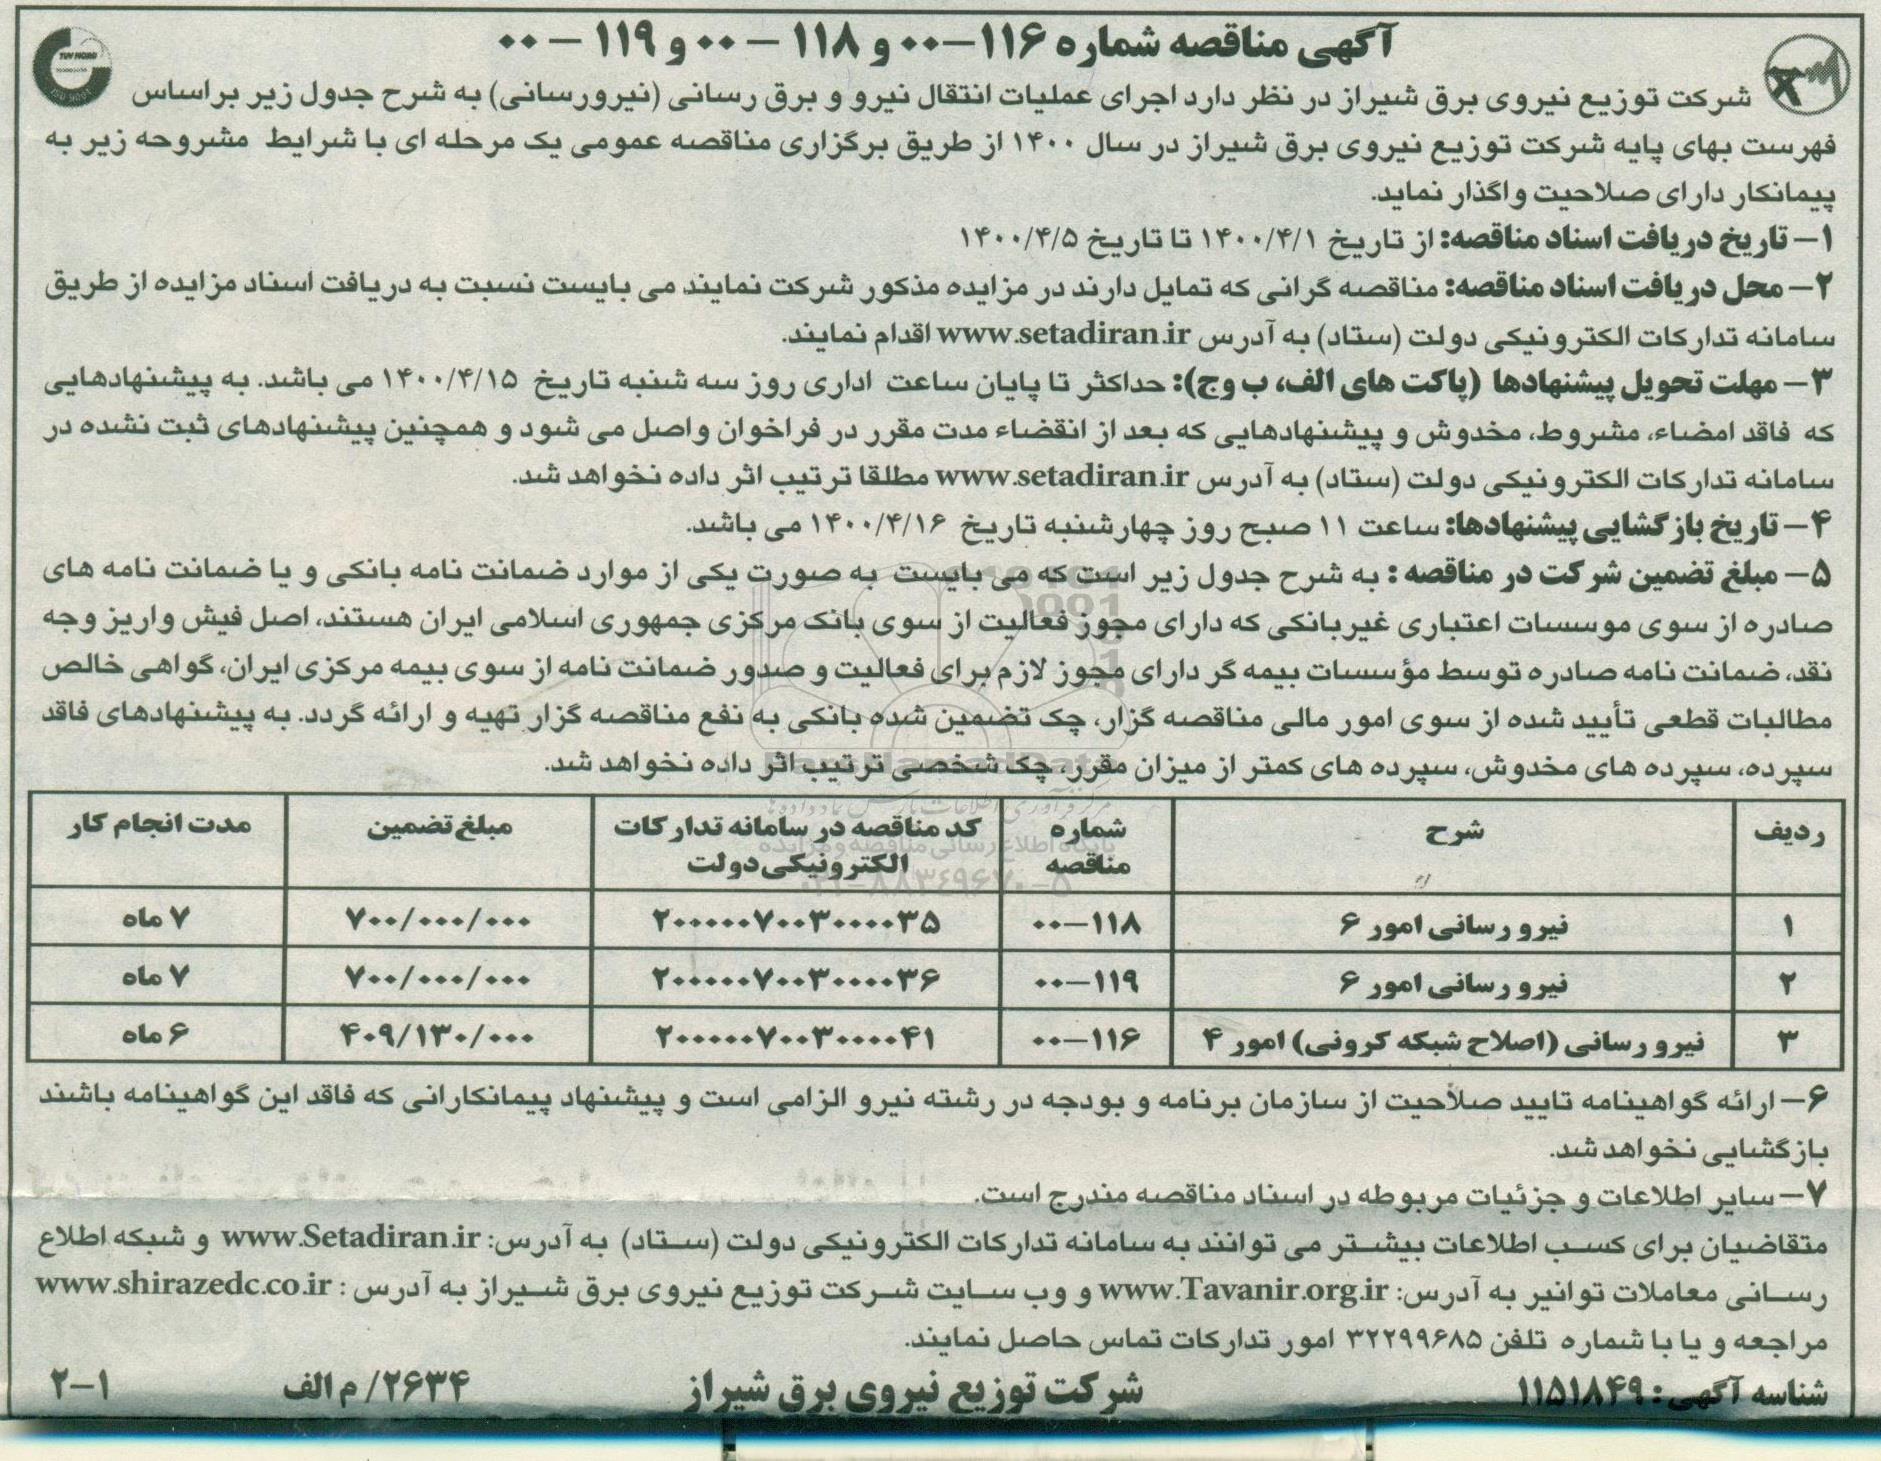 آگهی مناقصه شماره ۱۱۶-۰۰ و ۱۱۸ - ۰۰ و ۱۱۹ - ۰۰
شرکت توزیع نیروی برق شیراز در نظر دارد اجرای عملیات انتقال نیرو و برق رسانی (نیرورسانی) به شرح جدول زیر براساس
فهرست بهای پایه شرکت توزیع نیروی برق شیراز در سال ۱۴۰۰ از طریق برگزاری مناقصه عمومی یک مرحله ای با شرایط مشروحه زیر به
پیمانکار دارای صلاحیت واگذار نماید.
۱- تاریخ دریافت اسناد مناقصه: از تاریخ ۱۴۰۰/۴/۱ تا تاریخ ۱۴۰۰/۴/۵
۲- محل دریافت اسناد مناقصه: مناقصه گرانی که تمایل دارند در مزایده مذکور شرکت نمایند می بایست نسبت به دریافت اسناد مزایده از طریق
سامانه تدارکات الکترونیکی دولت (ستاد) به آدرس www.setadiran.ir اقدام نمایند.
۳- مهلت تحویل پیشنهادها (پاکت های الف، ب وج): حداکثر تا پایان ساعت اداری روز سه شنبه تاریخ ۱۴۰۰/۴/۱۵ می باشد. به پیشنهادهایی
که فاقد امضاء، مشروط، مخدوش و پیشنهادهایی که بعد از انقضاء مدت مقرر در فراخوان واصل می شود و همچنین پیشنهادهای ثبت نشده در
سامانه تدارکات الکترونیکی دولت (ستاد) به آدرس www.setadiran.ir مطلقا ترتیب اثر داده نخواهد شد.
۴- تاریخ بازگشایی پیشنهادها: ساعت ۱۱ صبح روز چهارشنبه تاریخ ۱۴۰۰/۴/۱۶ می باشد.
۵- مبلغ تضمین شرکت در مناقصه : به شرح جدول زیر است که می بایست به صورت یکی از موارد ضمانت نامه بانکی و یا ضمانت نامه های
صادره از سوی موسسات اعتباری غیربانکی که دارای مجوز فعالیت از سوی بانک مرکزی جمهوری اسلامی ایران هستند، اصل فیش واریز وجه
نقد، ضمانت نامه صادره توسط مؤسسات بیمه گر دارای مجوز لازم برای فعالیت و صدور ضمانت نامه از سوی بیمه مرکزی ایران، گواهی خالص
مطالبات قطعی تأیید شده از سوی امور مالی مناقصه گزار، چک تضمین شده بانکی به نفع مناقصه گزار تهیه و ارائه گردد. به پیشنهادهای فاقد
سپرده، سپرده های مخدوش، سپرده های کمتر از میزان مقرر، چک شخصی ترتیب اثر داده نخواهد شد.
ردیف شرح شماره مناقصه کد مناقصه در سامانه تدارکات الکترونیکی دولت مبلغ تضمین مدت انجام کار
۱ نیرو رسانی امور ۶ ۱۱۸-۰۰ ۲۰۰۰۰۰۷۰۰۳۰۰۰۰۳۵ ۷۰۰/۰۰۰/۰۰۰ ۷ ماه
۲ نیرو رسانی امور ۶ ۱۱۹-۰۰ ۲۰۰۰۰۰۷۰۰۳۰۰۰۰۳۶ ۷۰۰/۰۰۰/۰۰۰ ۷ ماه
۳ نیرو رسانی (اصلاح شبکه کرونی) امور ۴ ۱۱۶-۰۰ ۲۰۰۰۰۰۷۰۰۳۰۰۰۰۴۱ ۴۰۹/۱۳۰/۰۰۰ ۶ ماه
۶- ارائه گواهینامه تایید صلاحیت از سازمان برنامه و بودجه در رشته نیرو الزامی است و پیشنهاد پیمانکارانی که فاقد این گواهینامه باشند
بازگشایی نخواهد شد.
۷- سایر اطلاعات و جزئیات مربوطه در اسناد مناقصه مندرج است.
متقاضیان برای کسب اطلاعات بیشتر می توانند به سامانه تدارکات الکترونیکی دولت (ستاد) به آدرس: www.Setadiran.ir و شبکه اطلاع
رسانی معاملات توانیر به آدرس: www.Tavanir.org.ir و وب سایت شرکت توزیع نیروی برق شیراز به آدرس : www.shirazedc.co.ir
مراجعه و یا با شماره تلفن ۳۲۲۹۹۶۸۵ امور تدارکات تماس حاصل نمایند.
شناسه آگهی : ۱۱۵۱۸۴۹ شرکت توزیع نیروی برق شیراز ۲۶۳۴/ م الف ۲-۱